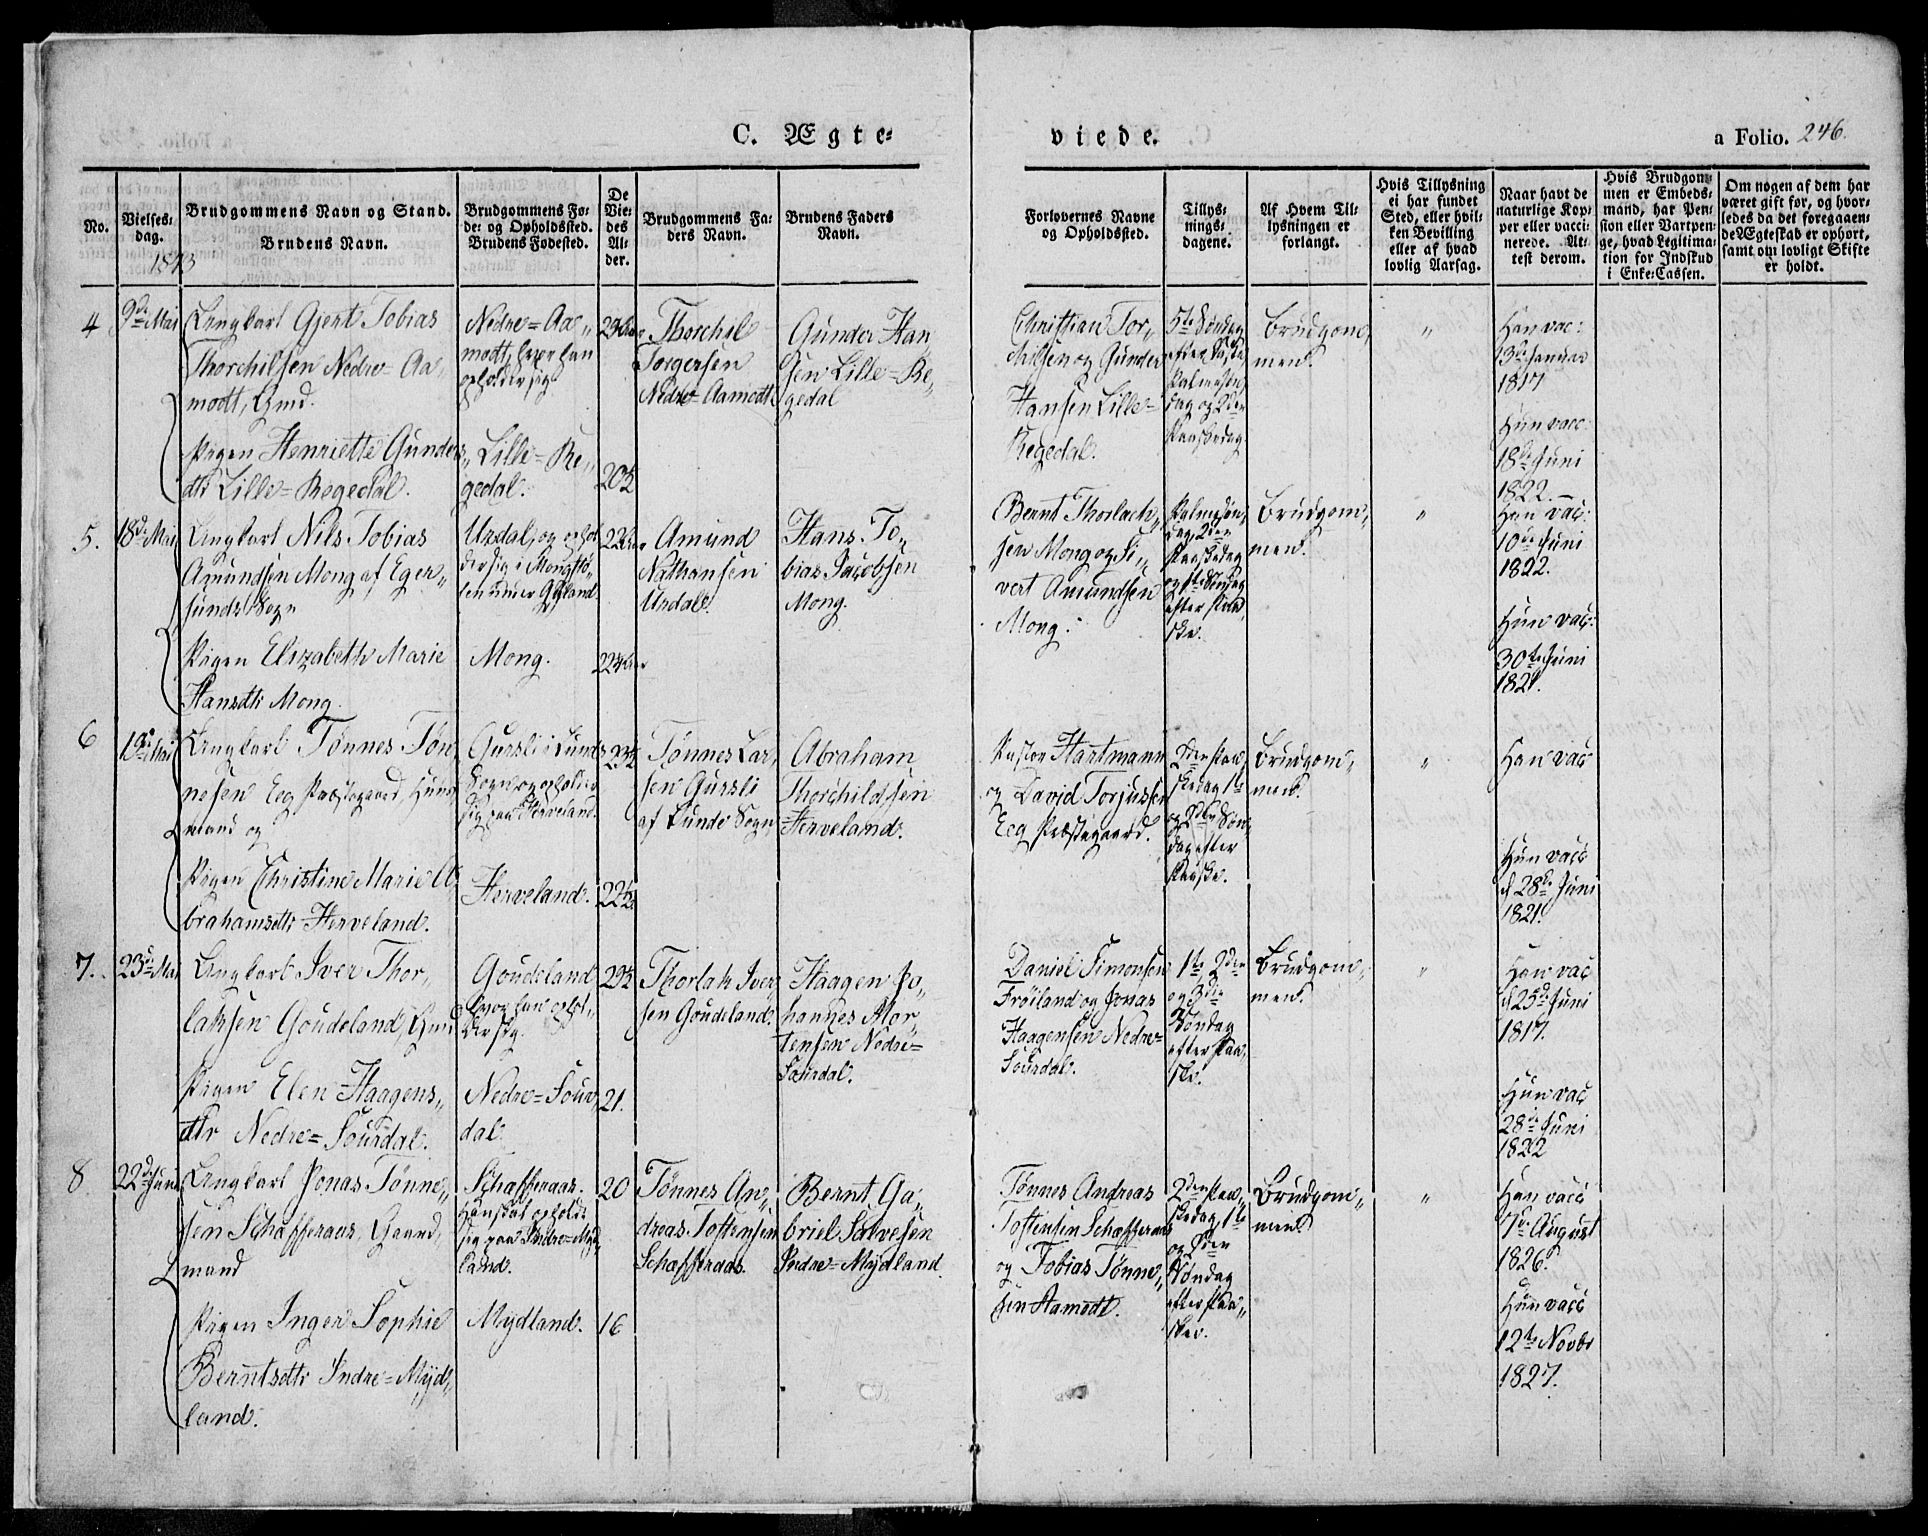 C. Ægte-
viede.
a Folio. 246.
No.
Vielses-
dag.
1843
Brudgommens Navn og Stand.
Brudens Navn.
Brudgommens Fø-
de- og Opholdssted.
Brudens Fødested.
De
Vie-
des
Al-
der.
Brudgommens Fa-
ders Navn.
Brudens Faders
Navn.
Forlovernes Navne
og Opholdssted.
Tillys-
nings-
dagene.
Af Hvem Til-
lysningen er
forlangt.
Hvis Tillysning
ei har fundet
Sted, eller hvil-
ken Bevilling
eller af hvad
lovlig Aarsag.
Naar havt de
naturlige Kop-
per eller vacci-
nerede. At-
test derom.
Hvis Brudgom-
men er Embeds-
mand, har Pen-
sion eller Vartpen-
ge, hvad Legitima-
tion for Indskud
i Enke-Cassen.
Om nogen af dem har
været gift før, og hvor-
ledes da det foregaaen-
de Ægteskab er ophørt,
samt om lovligt Skifte
er holdt.
4
9de Mai
Ungkarl Gjert Tobias
Thorchilsen Nedre Aa-
modt, Gmd.
Pigen Henriette Gunders-
dtr Lille=Regedal.
Nedre=Aa-
modt, hvor han
opholder sig.
Lille=Re-
gedal.
20½
Thorchil
Torgersen
Nedre=Aamodt
Gunder Han-
sen Lille=Re-
gedal
Christian Tor-
kilsen og Gunder
Hansen Lille=
Regedal.
5te Søndag
efter Faste
Palmesøn-
dag og 2den
Paaskedag
Brudgom-
men.
"
Han vac:
3de Januar
1817
Hun vacc:
18de Juni
1822.
5.
18de Mai
Ungkarl Nils Tobias
Amundsen Mong af Eger-
sunds Sogn
Pigen Elizabeth Marie
Hansdtr Mong.
Urdal, og ophol-
der sig i Mong
Mong.
Amund
Nathansen
Urdal.
Hans To-
bias Jacobsen
Mong.
Bernt Thorlach-
sen Mong og Si-
vert Amundsen
Mong.
Palmesøn-
dag, 2den
Paaskedag
og 1te Søndag
efter Paa-
ske.
Brudgom-
men.
"
Han vac:
10de Juni
1822.
Hun vac:
30te Juni
1821.
6
19de Mai
Ungkarl Tønnes Tøn-
nesen Eeg Præstegaard, Huus-
mand og
Pigen Christine Marie A-
brahamsdtr Herveland.
Gursli i Lunds
Sogn og opholder
sig paa Herveland.
Herveland.
22½
Tønnes Lar-
sen Gursli
af Lunds Sogn
Abraham
Thorchildsen
Herveland.
Pastor Hartmann
og David Torjussen
Eeg Præstegaard.
2den Paa-
skedag 1te
og 2den Søn-
dag efter
Paaske.
Brudgom-
men.
"
Han vacc
Hun vacc
d 28de Juni
1821.
7.
23de Mai
Ungkarl Iver Thor-
laksen Goudeland, Gmd
Pigen Elen Haagens-
dtr Nedre=Sourdal.
Goudeland
hvor han ophol-
der sig.
Nedre=Sour-
dal.
29½
21.
Thorlak Iver-
sen Goudeland.
Haagen Jo-
hannes Mor-
tensen Nedre=
Sourdal.
Daniel Simonsen
Frøiland og Jonas
Haagensen Nedre=
Sourdal.
1te, 2den
og 3die
Søndag
efter Paa-
ske.
Brudgom-
men.
"
Han vac
d 25de Juni
1817.
Hun vac
28de Juni
1822
8
22de Juni
Ungkarl Jonas Tønne-
sen Schafferaas, Gaard-
mand
Pigen Inger Sophie
Berntsdtr Indre=Myd-
land.
Schafferaas.
Han skal opholde
sig paa Indre=Myd-
land.
Mydland.
20
16
Tønnes An-
dreas Tostensen
Schafferaas.
Bernt Ga-
briel Salvesen
Indre=Mydland.
Tønnes Andreas
Tostensen Schafferaas
og Tobias Tønne-
sen Aamodt.
2den Paa-
skedag, 1te
og 2den
Søndag
efter Paa-
ske.
Brudgom-
men.
"
Han vacc
7de August
1826.
Hun vacc
12te Novbr
1827.